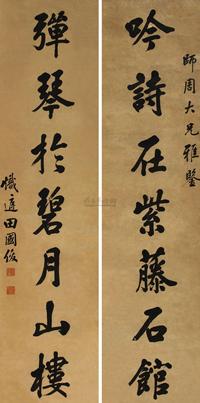 師周大兄雅鑒
吟詩在紫藤石館
彈琴於碧月山樓
熾庭田國俊